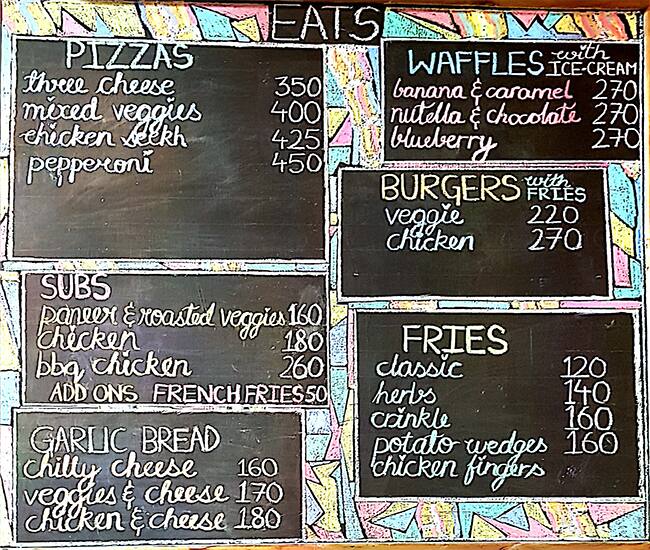 EATS
PIZZAS
three cheese 350
mixed veggies 400
chicken seekh 425
pepperoni 450
SUBS
paneer & roasted veggies 160
chicken 180
bbq chicken 260
ADD ONS FRENCH FRIES 50
GARLIC BREAD
chilly cheese 160
veggies & cheese 170
chicken & cheese 180
WAFFLES with ICE-CREAM
banana & caramel 270
nutella & chocolate 270
blueberry 270
BURGERS with FRIES
veggie 220
chicken 270
FRIES
classic 120
herbs 140
crinkle 160
potato wedges 160
chicken fingers